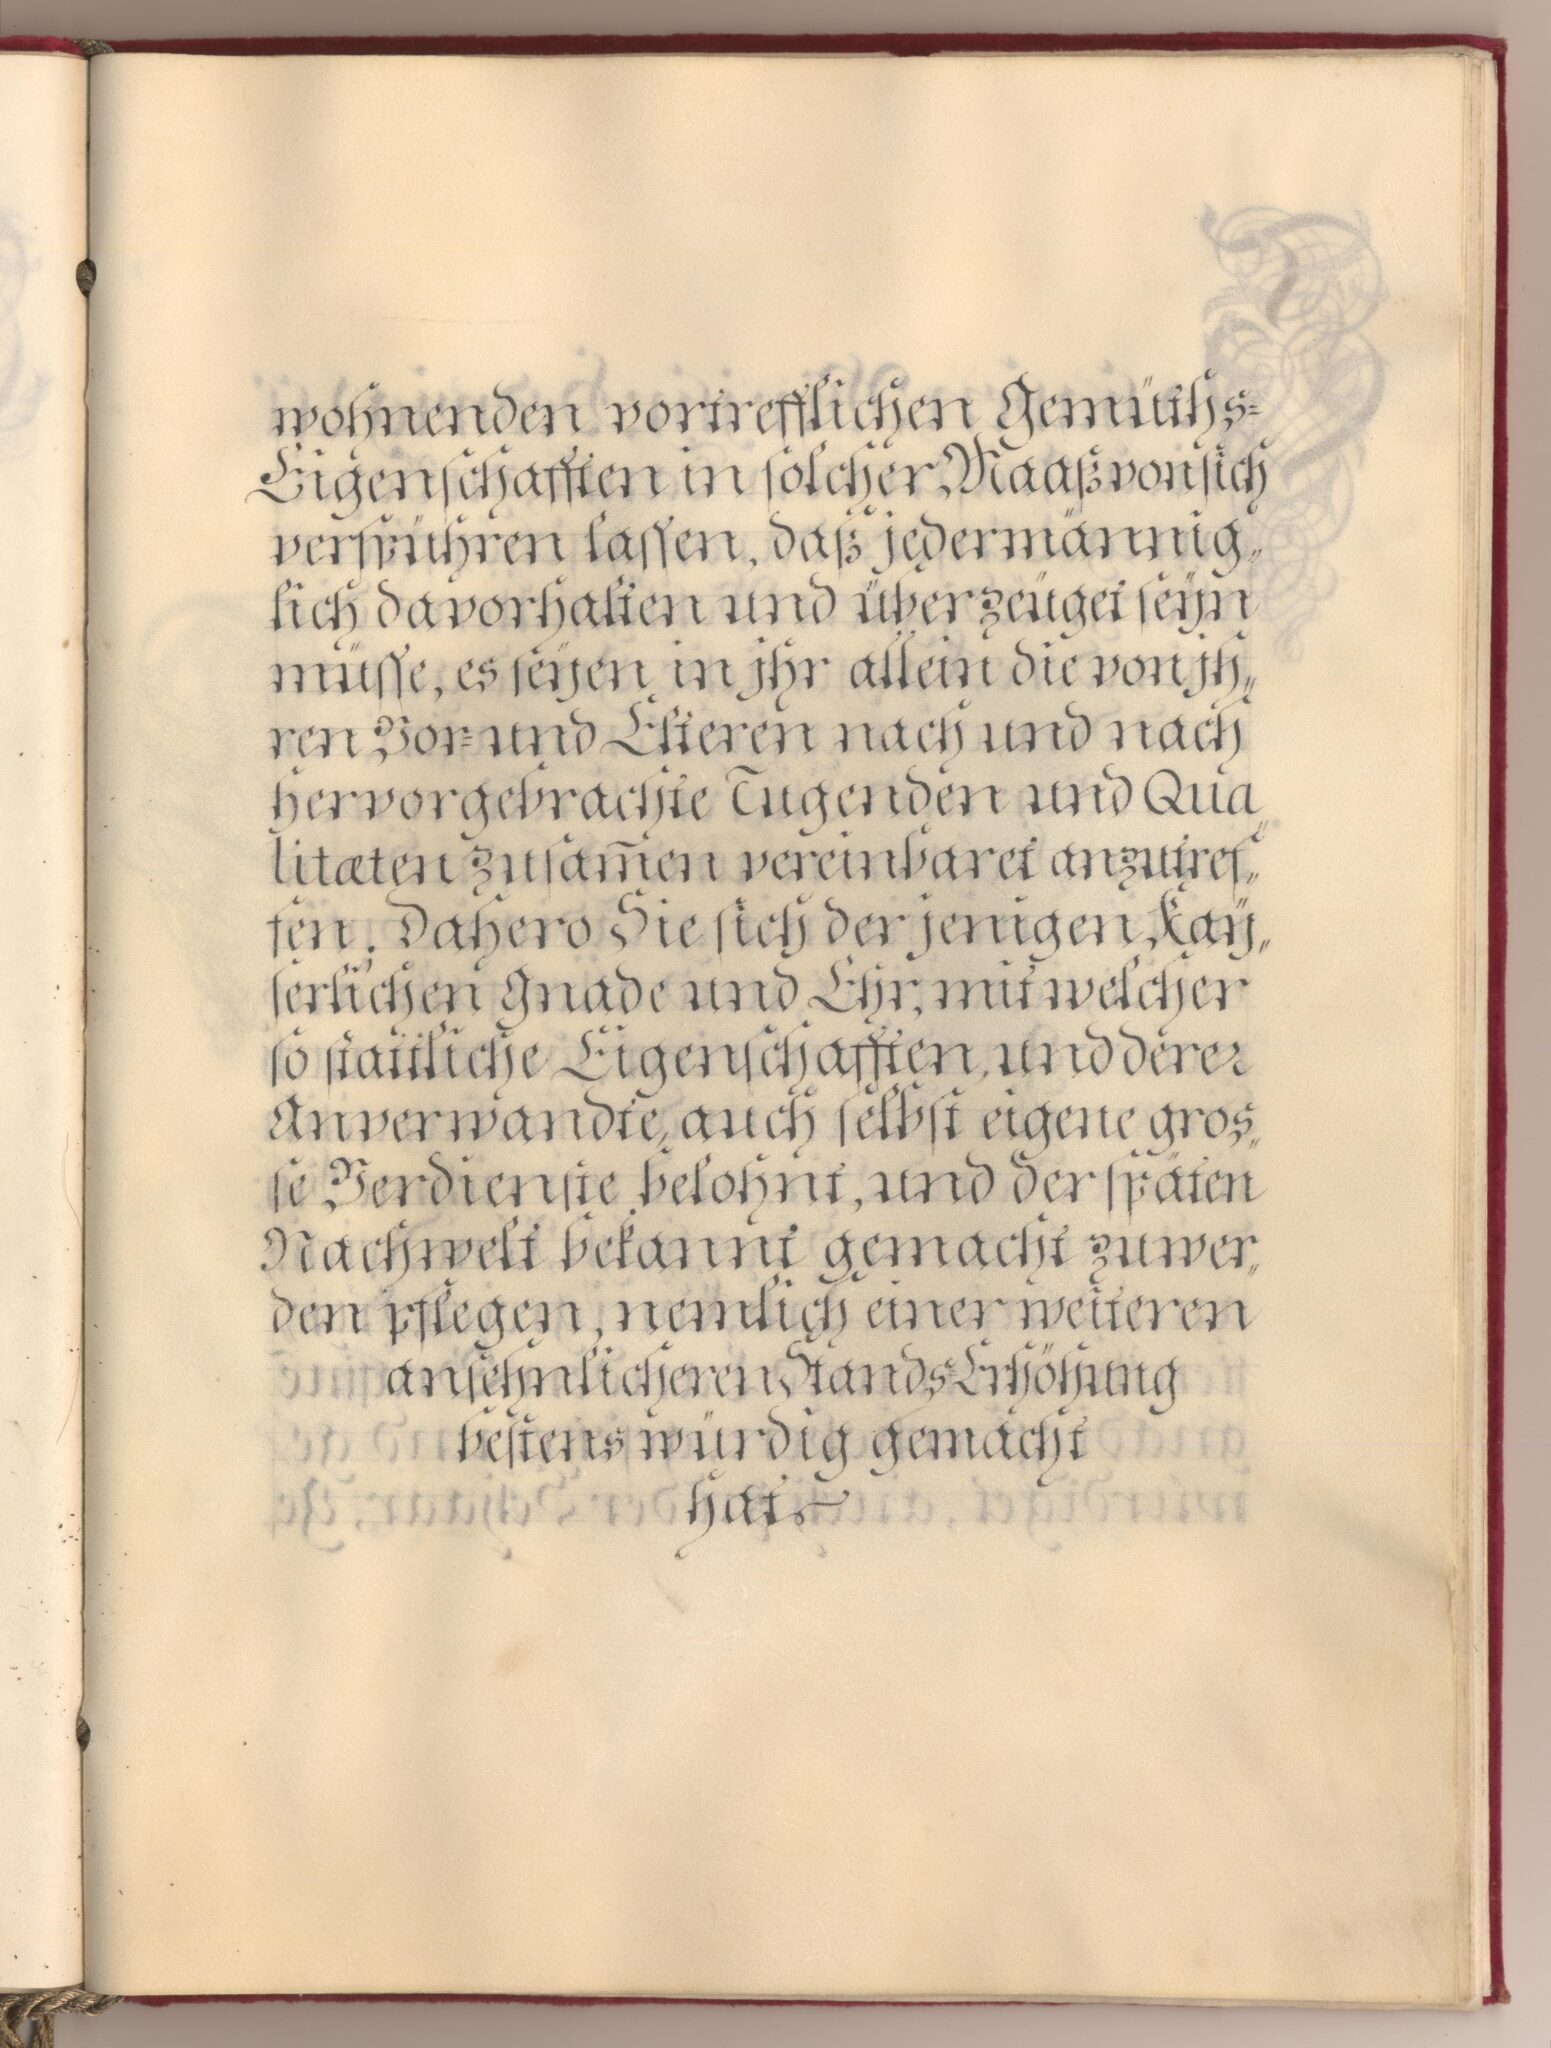 wohnenden vortrefflichen Gemüths=
Eigenschafften in solcher Maaß von sich
verspühren lassen, daß jedermännig„
lich davorhalten und überzeüget seÿn
müsse, es seÿen in jhr allein die von jh„
ren Vor= und Elteren nach und nach
hervorgebrachte Tugenden und Qua„
litæten zusam̄en vereinbaret anzutref„
fen. Dahero Sie sich der jenigen Kaÿ„
serlichen Gnade und Ehr, mit welcher
so stattliche Eigenschafften, und derer
Anverwandte, auch selbst eigene gros„
se Verdienste belohnt, und der späten
Nachwelt bekannt gemacht zu wer„
den pflegen, nemlich einer weiteren
ansehnlicheren Stands=Erhöhung
bestens würdig gemacht
hat.